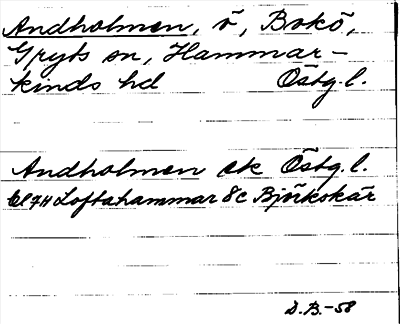 Andholmen, ö, Bokö,
Gryts sn, Hammar-
kinds hd Östg.l.
Andholmen ek Östg.l.
bl 7H Loftahammar 8c Björkskär
D.B.-58